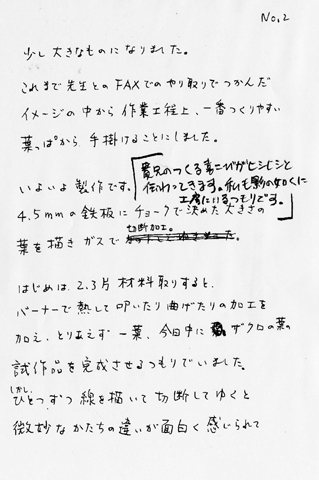 No.2
少し大きなものになりました。
これまで先生とのFAXでのやり取りでつかんだ
イメージの中から作業工程上、一番つくりやすい
葉っぱから手掛けることにしました。
いよいよ製作です。
貴兄のつくる喜こびがヒシヒシと
伝わってきます。私も影の如くに
工房にいるつもりです。
4.5mmの鉄板にチョークで決めた大きさの
葉を描きガスで
切断加工。
はじめは、2.3片 材料取りすると、
バーナーで熱して叩いたり曲げたりの加工を
加え、とりあえず一葉、今日中に ザクロの葉の
試作品を完成させるつもりでいました。
しかし、
ひとつずつ 線を描いて切断してゆくと
微妙なかたちの違いが面白く感じられて